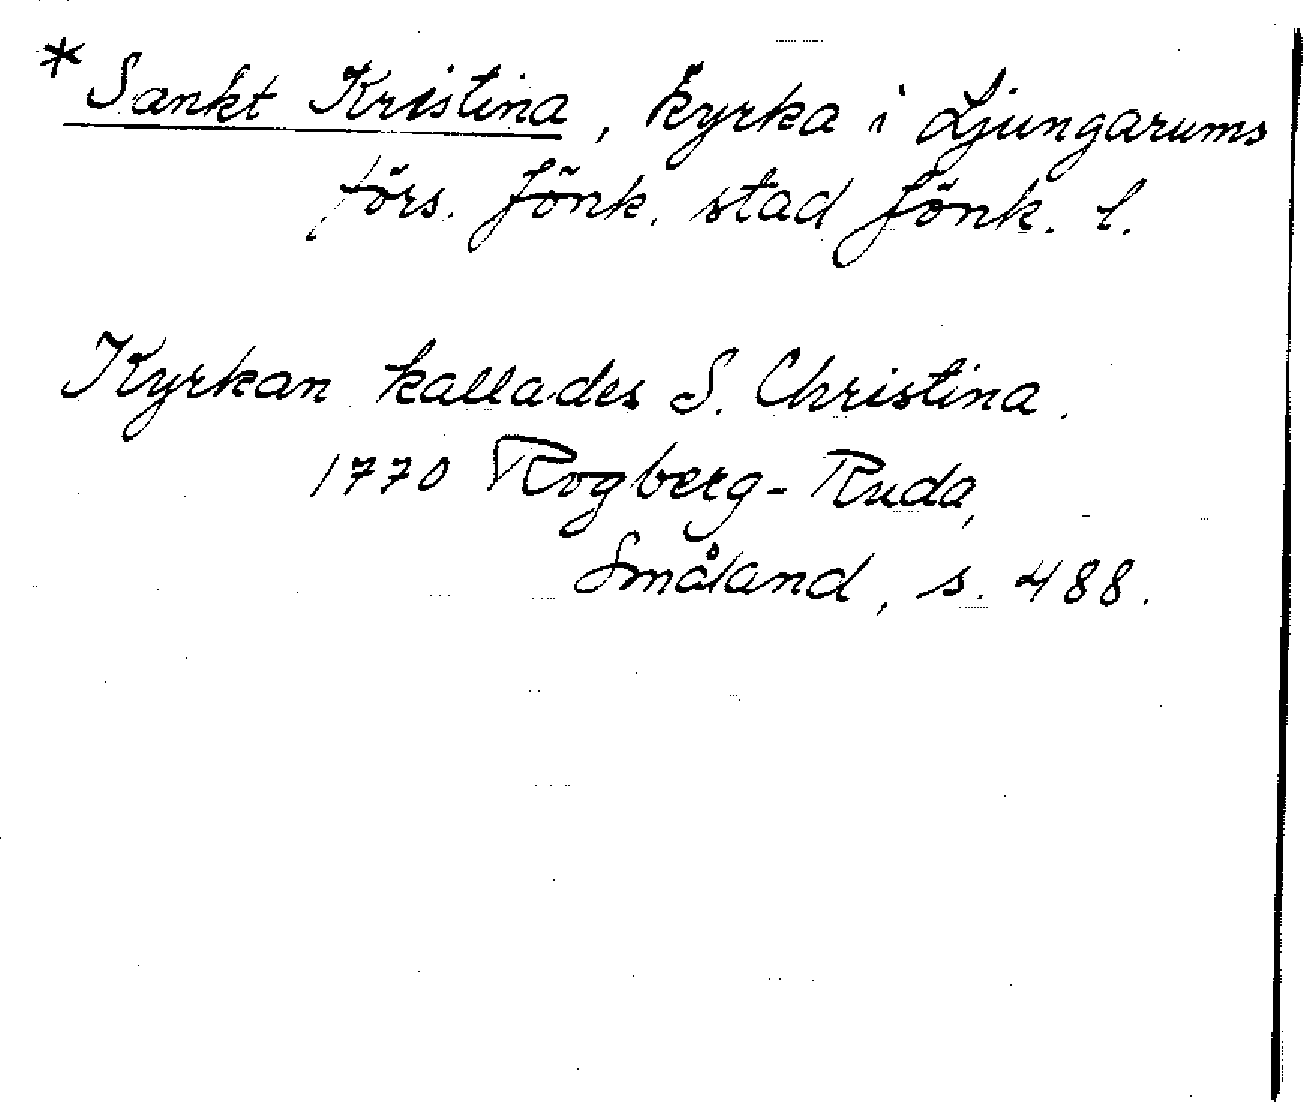 * Sankt Kristina, kyrka i Ljungarums
förs. Jönk. stad Jönk. l.
Kyrkan kallades S. Christina.
1770 Rogberg-Ruda,
Småland, s. 488.